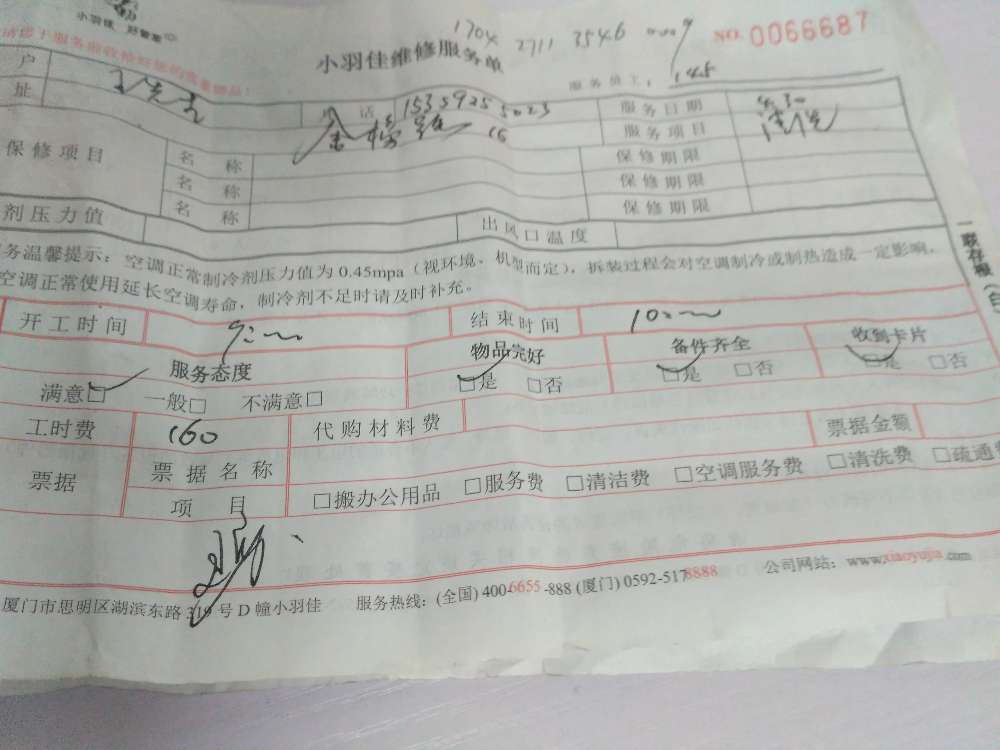 小羽佳 好管家
1704 2711 3546 0009
NO. 0066687
小羽佳维修服务单
服务员工:
户
话 153 5925 5023
服务日期 4.30
址
16
服务项目 清洗
保修项目
名 称 保修期限
名 称 保修期限
名 称 保修期限
剂压力值 出风口温度
务温馨提示:空调正常制冷剂压力值为 0.45mpa(视环境、机型而定),拆装过程会对空调制冷或制热造成一定影响,
空调正常使用延长空调寿命,制冷剂不足时请及时补充。
一联存根(白
开工时间 9:00 结束时间 10:00
服务态度 物品完好 备件齐全 收到卡片
满意□ 一般□ 不满意□ □是 □否 □是 □否 □是 □否
工时费 160 代购材料费 票据金额
票据 票据名称
项 目 □搬办公用品 □服务费 □清洁费 □空调服务费 □清洗费 □疏通
厦门市思明区湖滨东路 319 号 D 幢小羽佳 服务热线:(全国) 400-6655-888 (厦门) 0592-5178888 公司网站:www.xiaoyujia.com